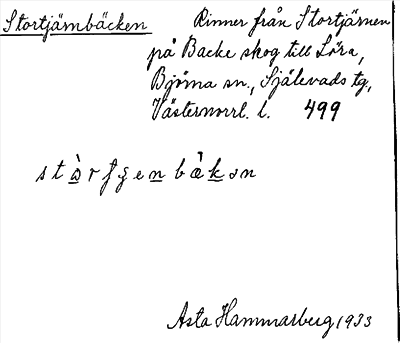 Stortjärnbäcken Rinner från Stortjärnen
på Backe skog till Löra,
Björna sn., Själevads tg,
Västernorrl. l. 499
Asta Hammarberg 1933